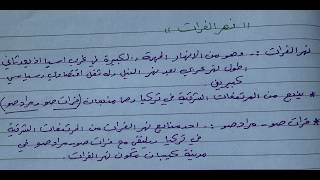 (( نهر الفرات ))
نهر الفرات :- وهو من الانهار المهمة والكبيرة في غرب اسيا اذ يعد ثاني
اطول نهر عربي بعد نهر النيل وله ثقل اقتصادي وسياسي
كبيرين .
* ينبع من المرتفعات الشرقية في تركيا وهما منبعان (فرات صو - مراد صو)
* فرات صو - مراد صو :- احد منابع نهر الفرات من المرتفعات الشرقية
في تركيا ويلتقي مع فرات صو - مراد صو في
مدينة كيبان مكون نهر الفرات .